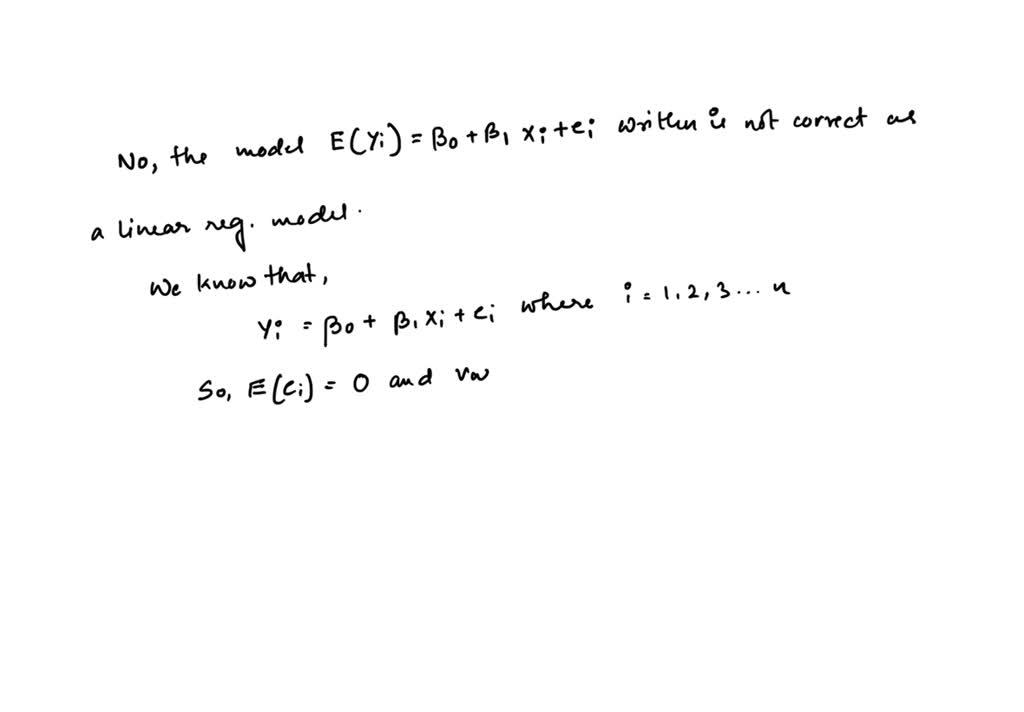 No, the model E(Yi) = β0 + β1 xi + ei written is not correct as
a linear reg. model.
We know that,
Yi = β0 + β1 xi + ei where i = 1, 2, 3 ... n
So, E(ei) = 0 and var